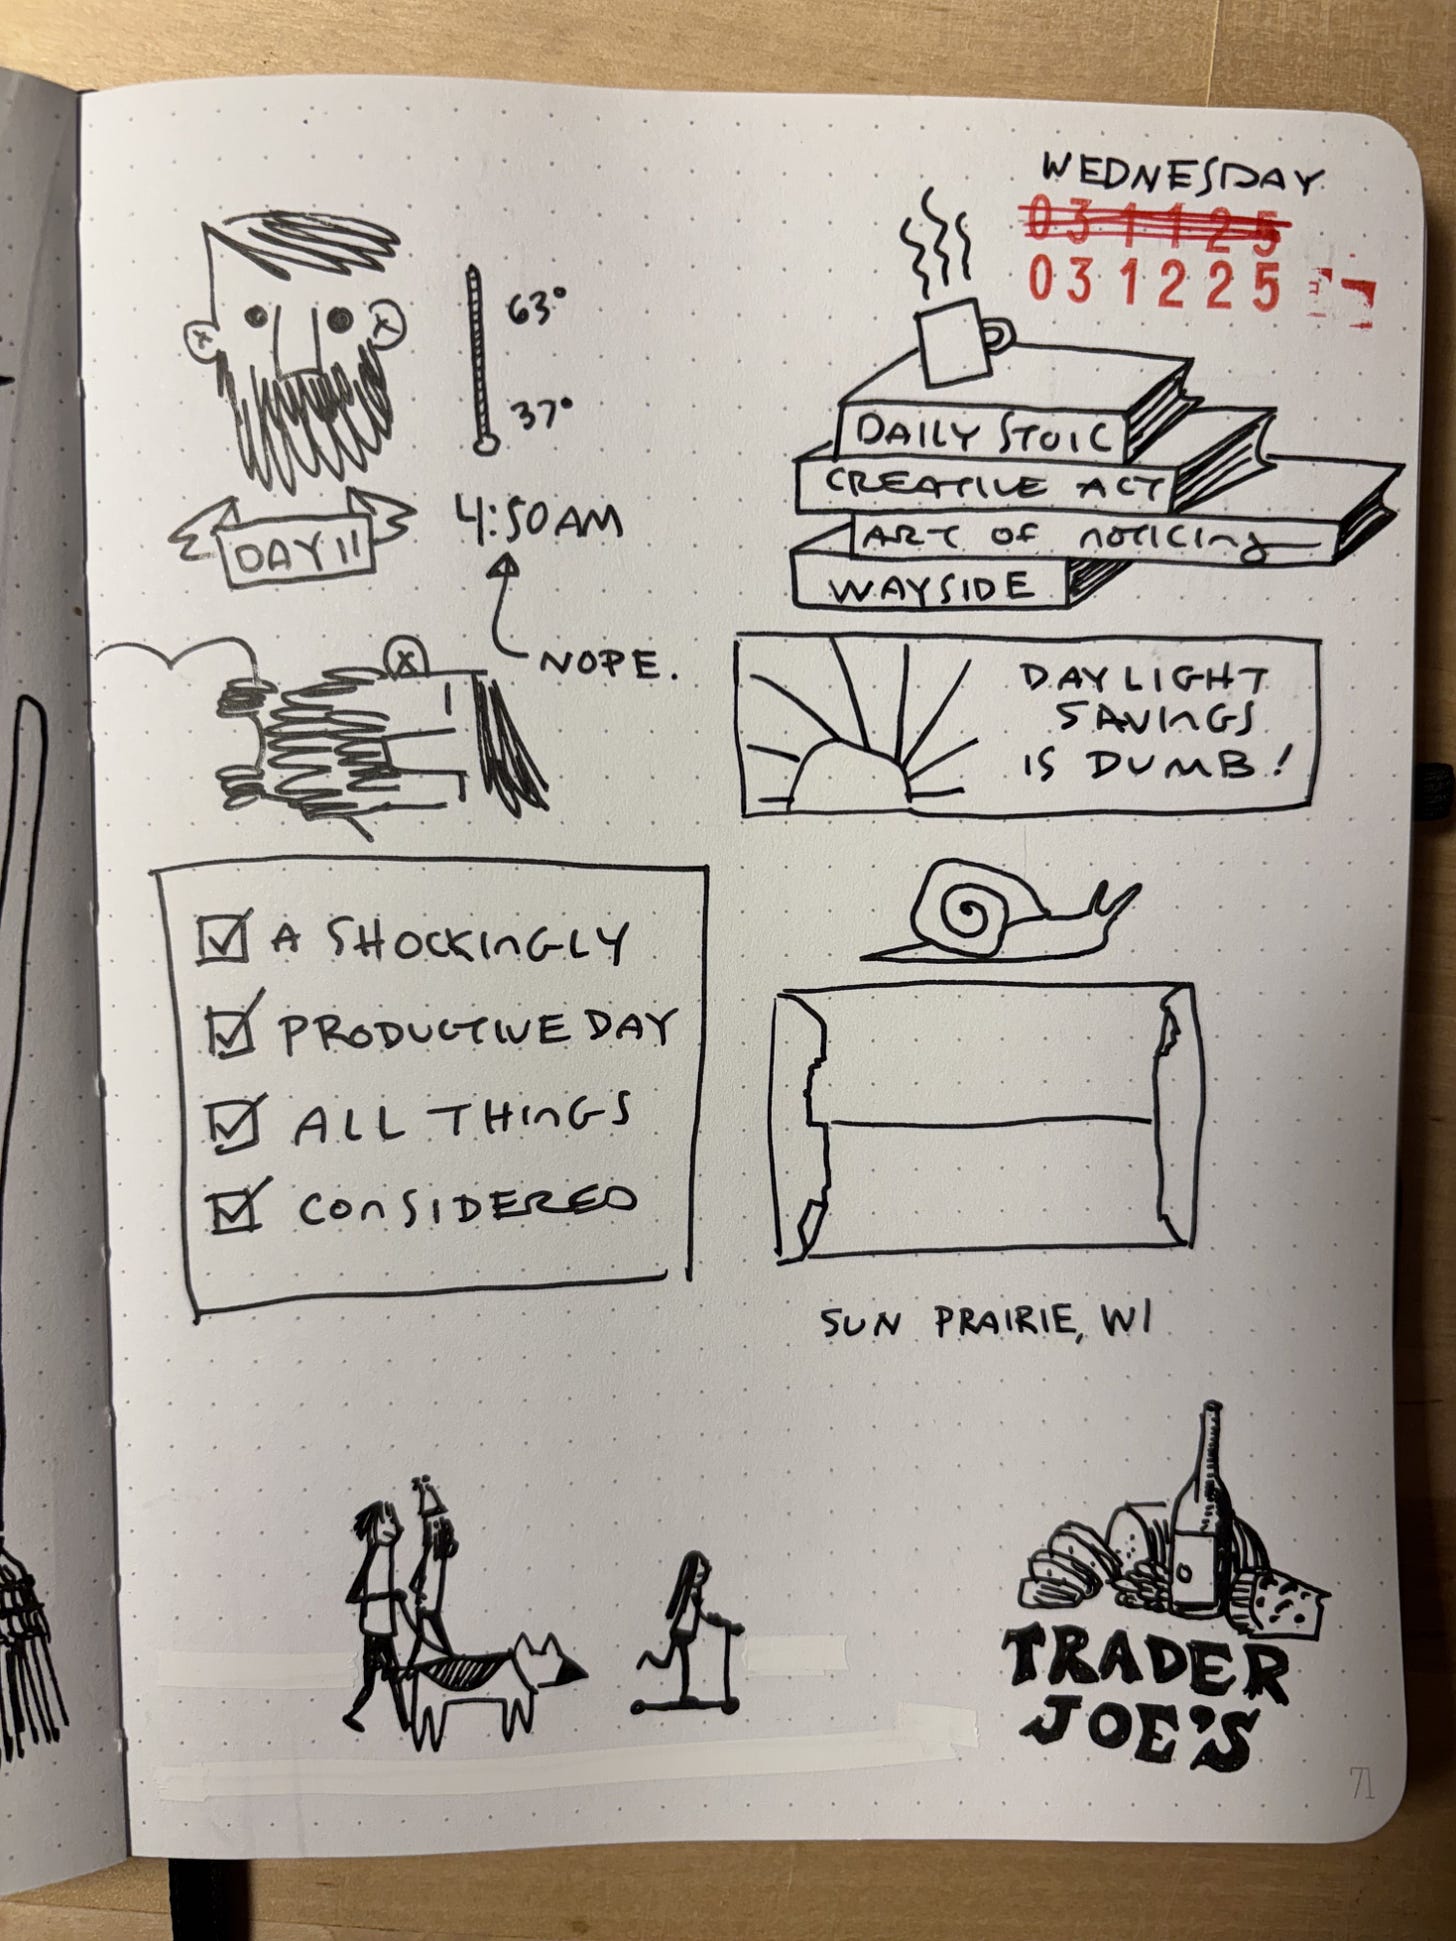 WEDNESDAY
031125
031225
63°
37°
DAILY STOIC
CREATIVE ACT
ART OF NOTICING
WAYSIDE
DAY 11
4:50AM
NOPE.
DAYLIGHT
SAVINGS
IS DUMB!
A SHOCKINGLY
PRODUCTIVE DAY
ALL THINGS
CONSIDERED
SUN PRAIRIE, WI
TRADER
JOE'S
71